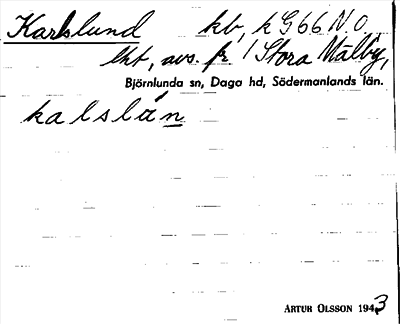 Karlslund kb, k G66 N.O.
lht, avs. fr. 1/ Stora Mälby,
Björnlunda sn, Daga hd, Södermanlands län.
kalslán
ARTUR OLSSON 1943